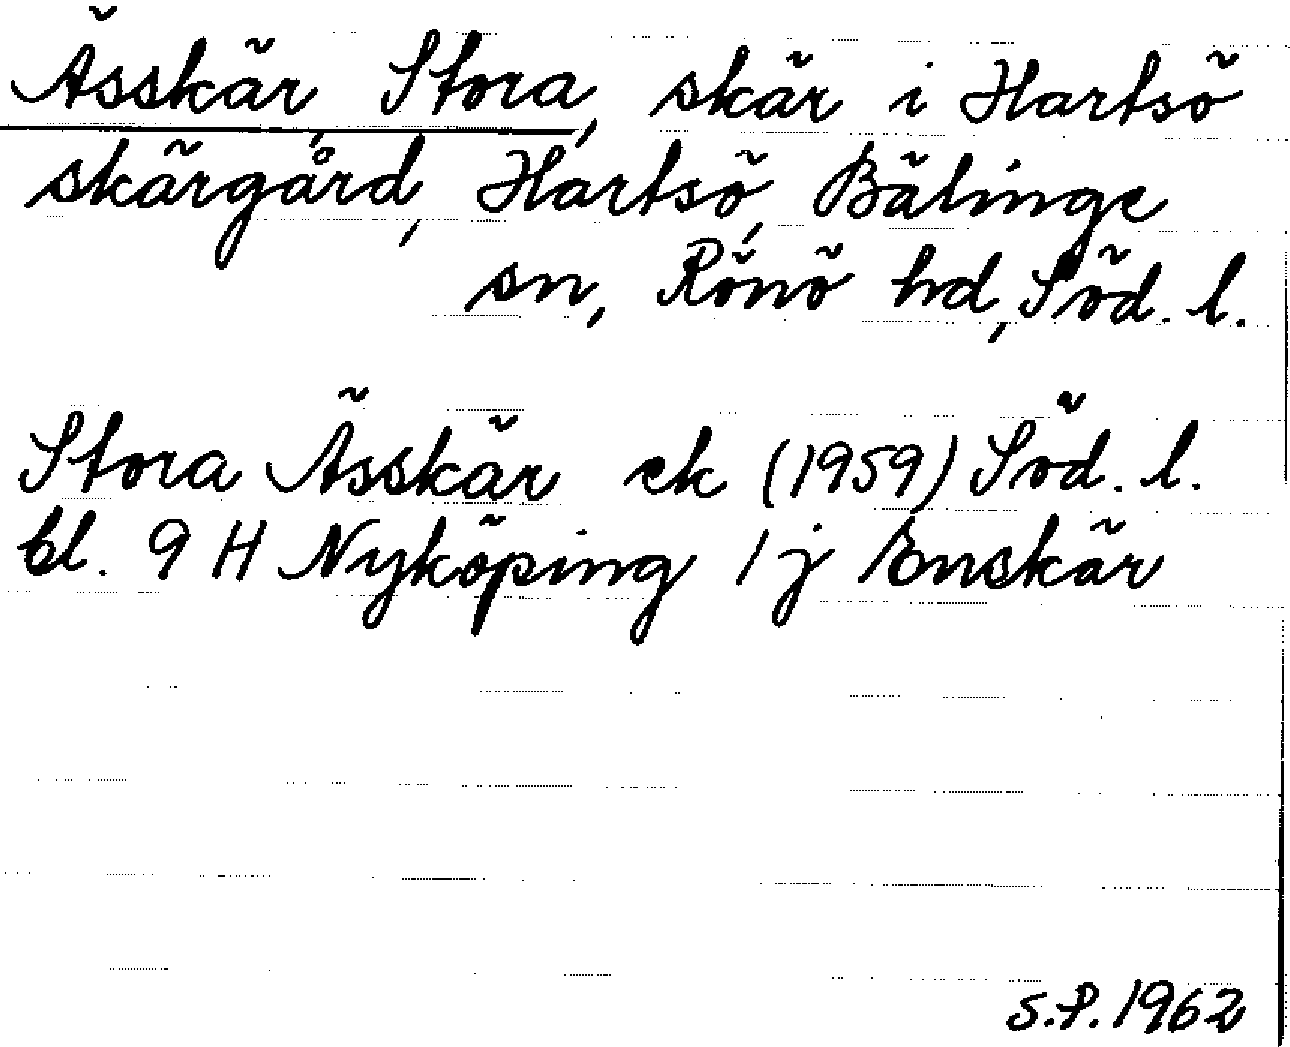 Ässkär, Stora, skär i Hartsö
skärgård, Hartsö, Bälinge
sn, Rönö hd, Söd. l.
Stora Ässkär ek (1959) Söd. l.
bl. 9 H Nyköping 1 j Enskär
S.P. 1962